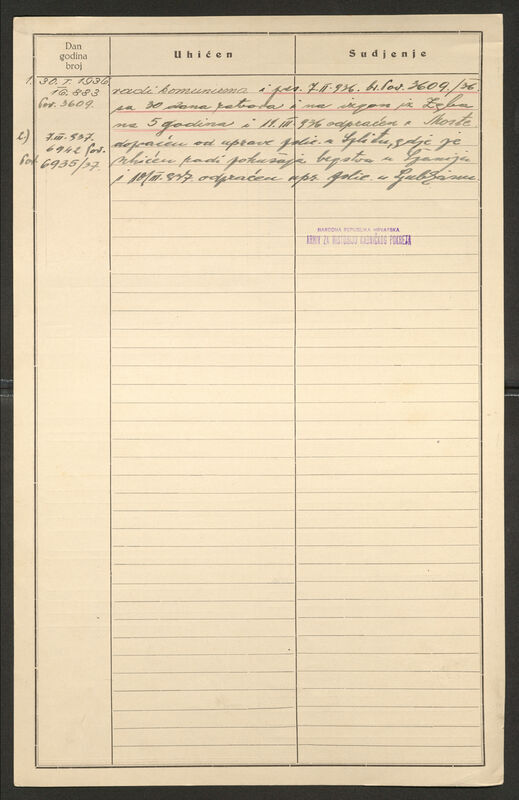 Dan
godina
broj
Uhićen
Sudjenje
1. 30. I. 1936
16.883
Pov. 3609.
radi komunizma i pres. 7.II.936. br. Pov. 3609./36
sa 30 dana zatvora i na izgon iz Zgba
na 5 godina i 11.III 936 odpraćen u Moste
2.) 7.III.937.
6942 Pov.
Pov. 6935/37.
dopraćen od uprave polic. u Splitu, gdje je
uhićen radi pokušaja begstva u Španiju
i 10/III.937 odpraćen upr. polic. u Ljubljanu.
NARODNA REPUBLIKA HRVATSKA
ARHIV ZA HISTORIJU RADNIČKOG POKRETA